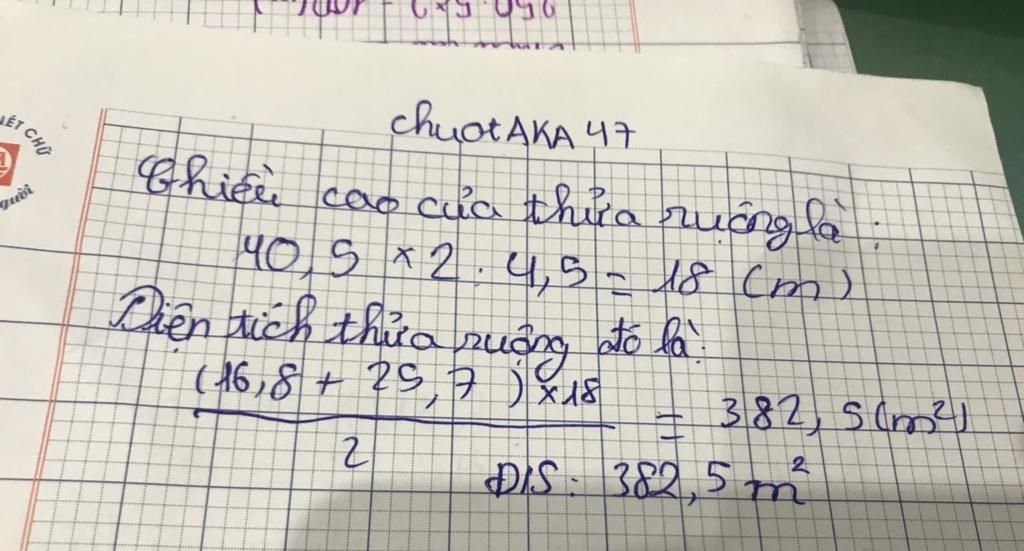 chuotAKA47
Chiều cao của thửa ruộng là:
40,5 × 2 : 4,5 = 18 (m)
Diện tích thửa ruộng đó là:
(16,8 + 25,7) × 18
2
= 382,5 (m²)
Đ/S: 382,5 m²